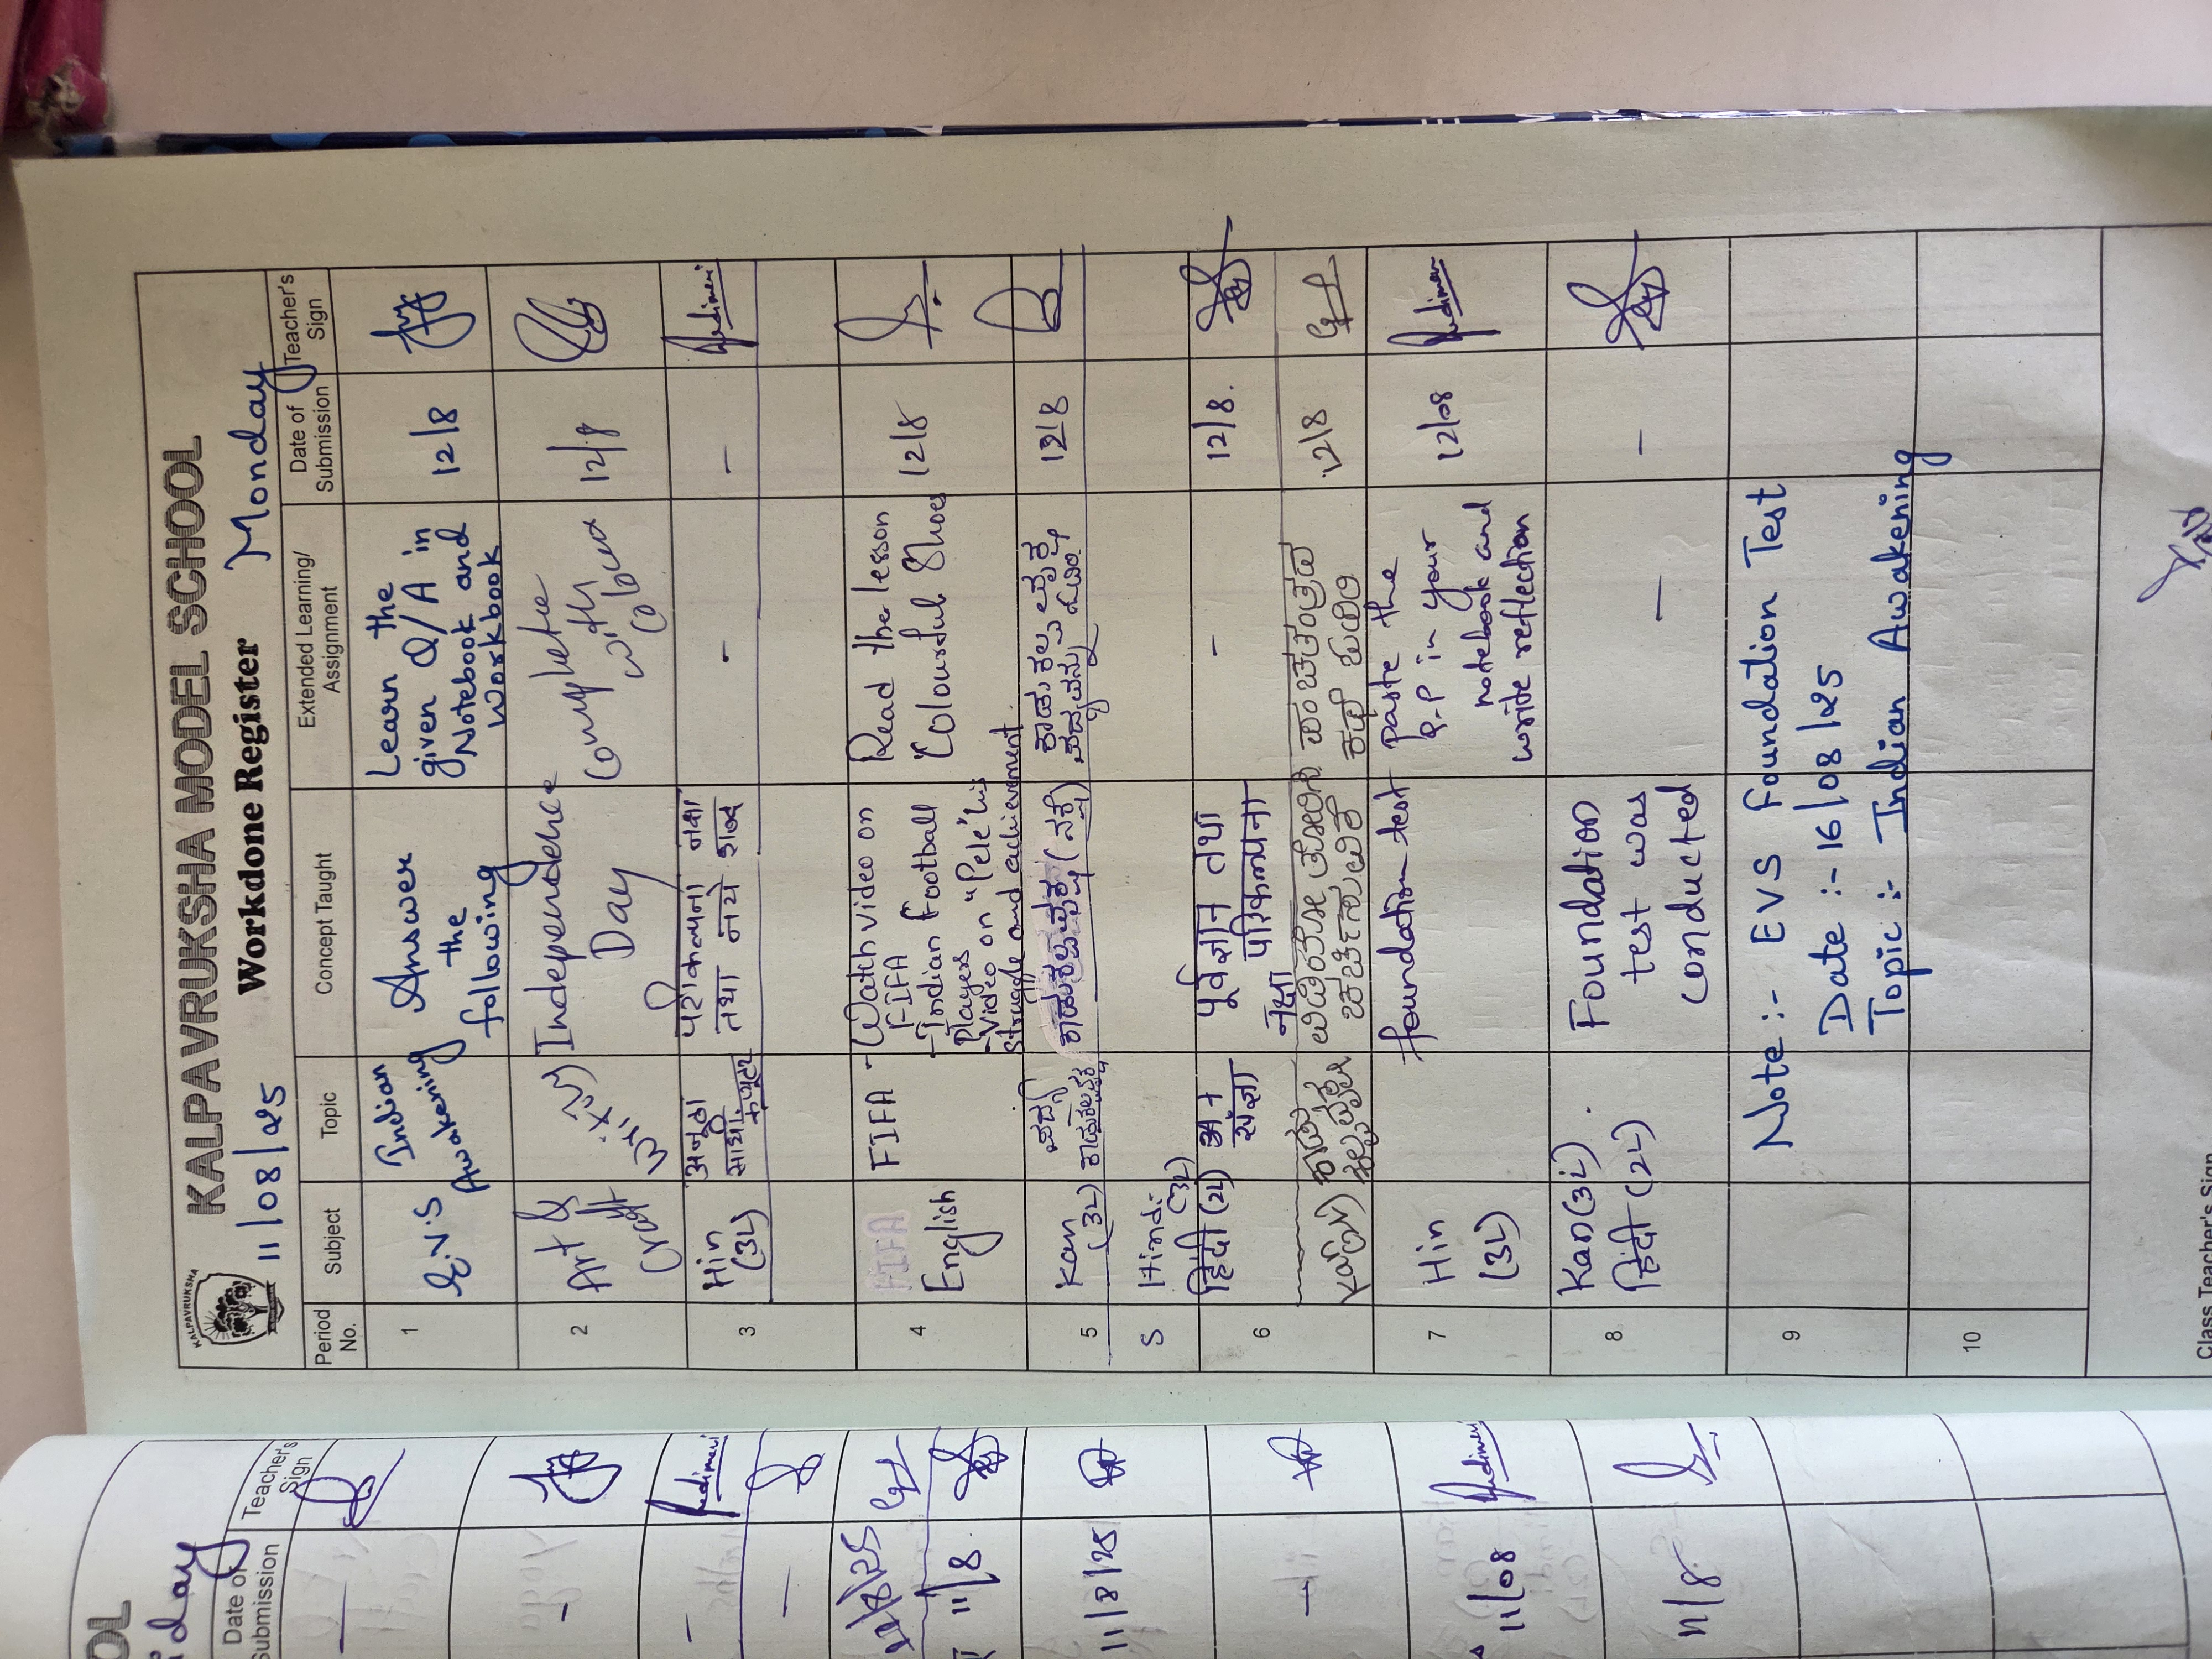 KALPAVRUKSHA
KALPAVRUKSHA MODEL SCHOOL
11/08/25 Workdone Register Monday
Period No. Subject Topic Concept Taught Extended Learning/ Assignment Date of Submission Teacher's Sign
1 E.V.S Indian Awakening Answer the following Learn the given Q/A in Notebook and Workbook 12/8
2 Art & Craft Independence Day Complete with colour 12/8
3 Hin (3L) अनूठा साथी कंप्यूटर परिकल्पना तथा नये शब्द - -
4 FIFA English FIFA - Watch video on FIFA
- Indian Football Players
- Video on "Pele" his struggle and achievement
Read the lesson Colourful Shoes 12/8
5 Kan (3L) ಪದ್ಯ 12/8
5 Hindi (3L)
6 हिंदी (2L) संज्ञा पूर्वज्ञान तथा परिकल्पना - 12/8.
12/8
7 Hin (3L) foundation test paste the Q.P in your notebook and write reflection 12/08
8 Kan (3L) हिंदी (2L) Foundation test was conducted — -
9 Note :- EVS Foundation Test
Date :- 16/08/25
Topic :- Indian Awakening
10
Class Teacher's Sign
OL
iday
Date of Submission Teacher's Sign
11/8
11/8/25
11/08
11/8